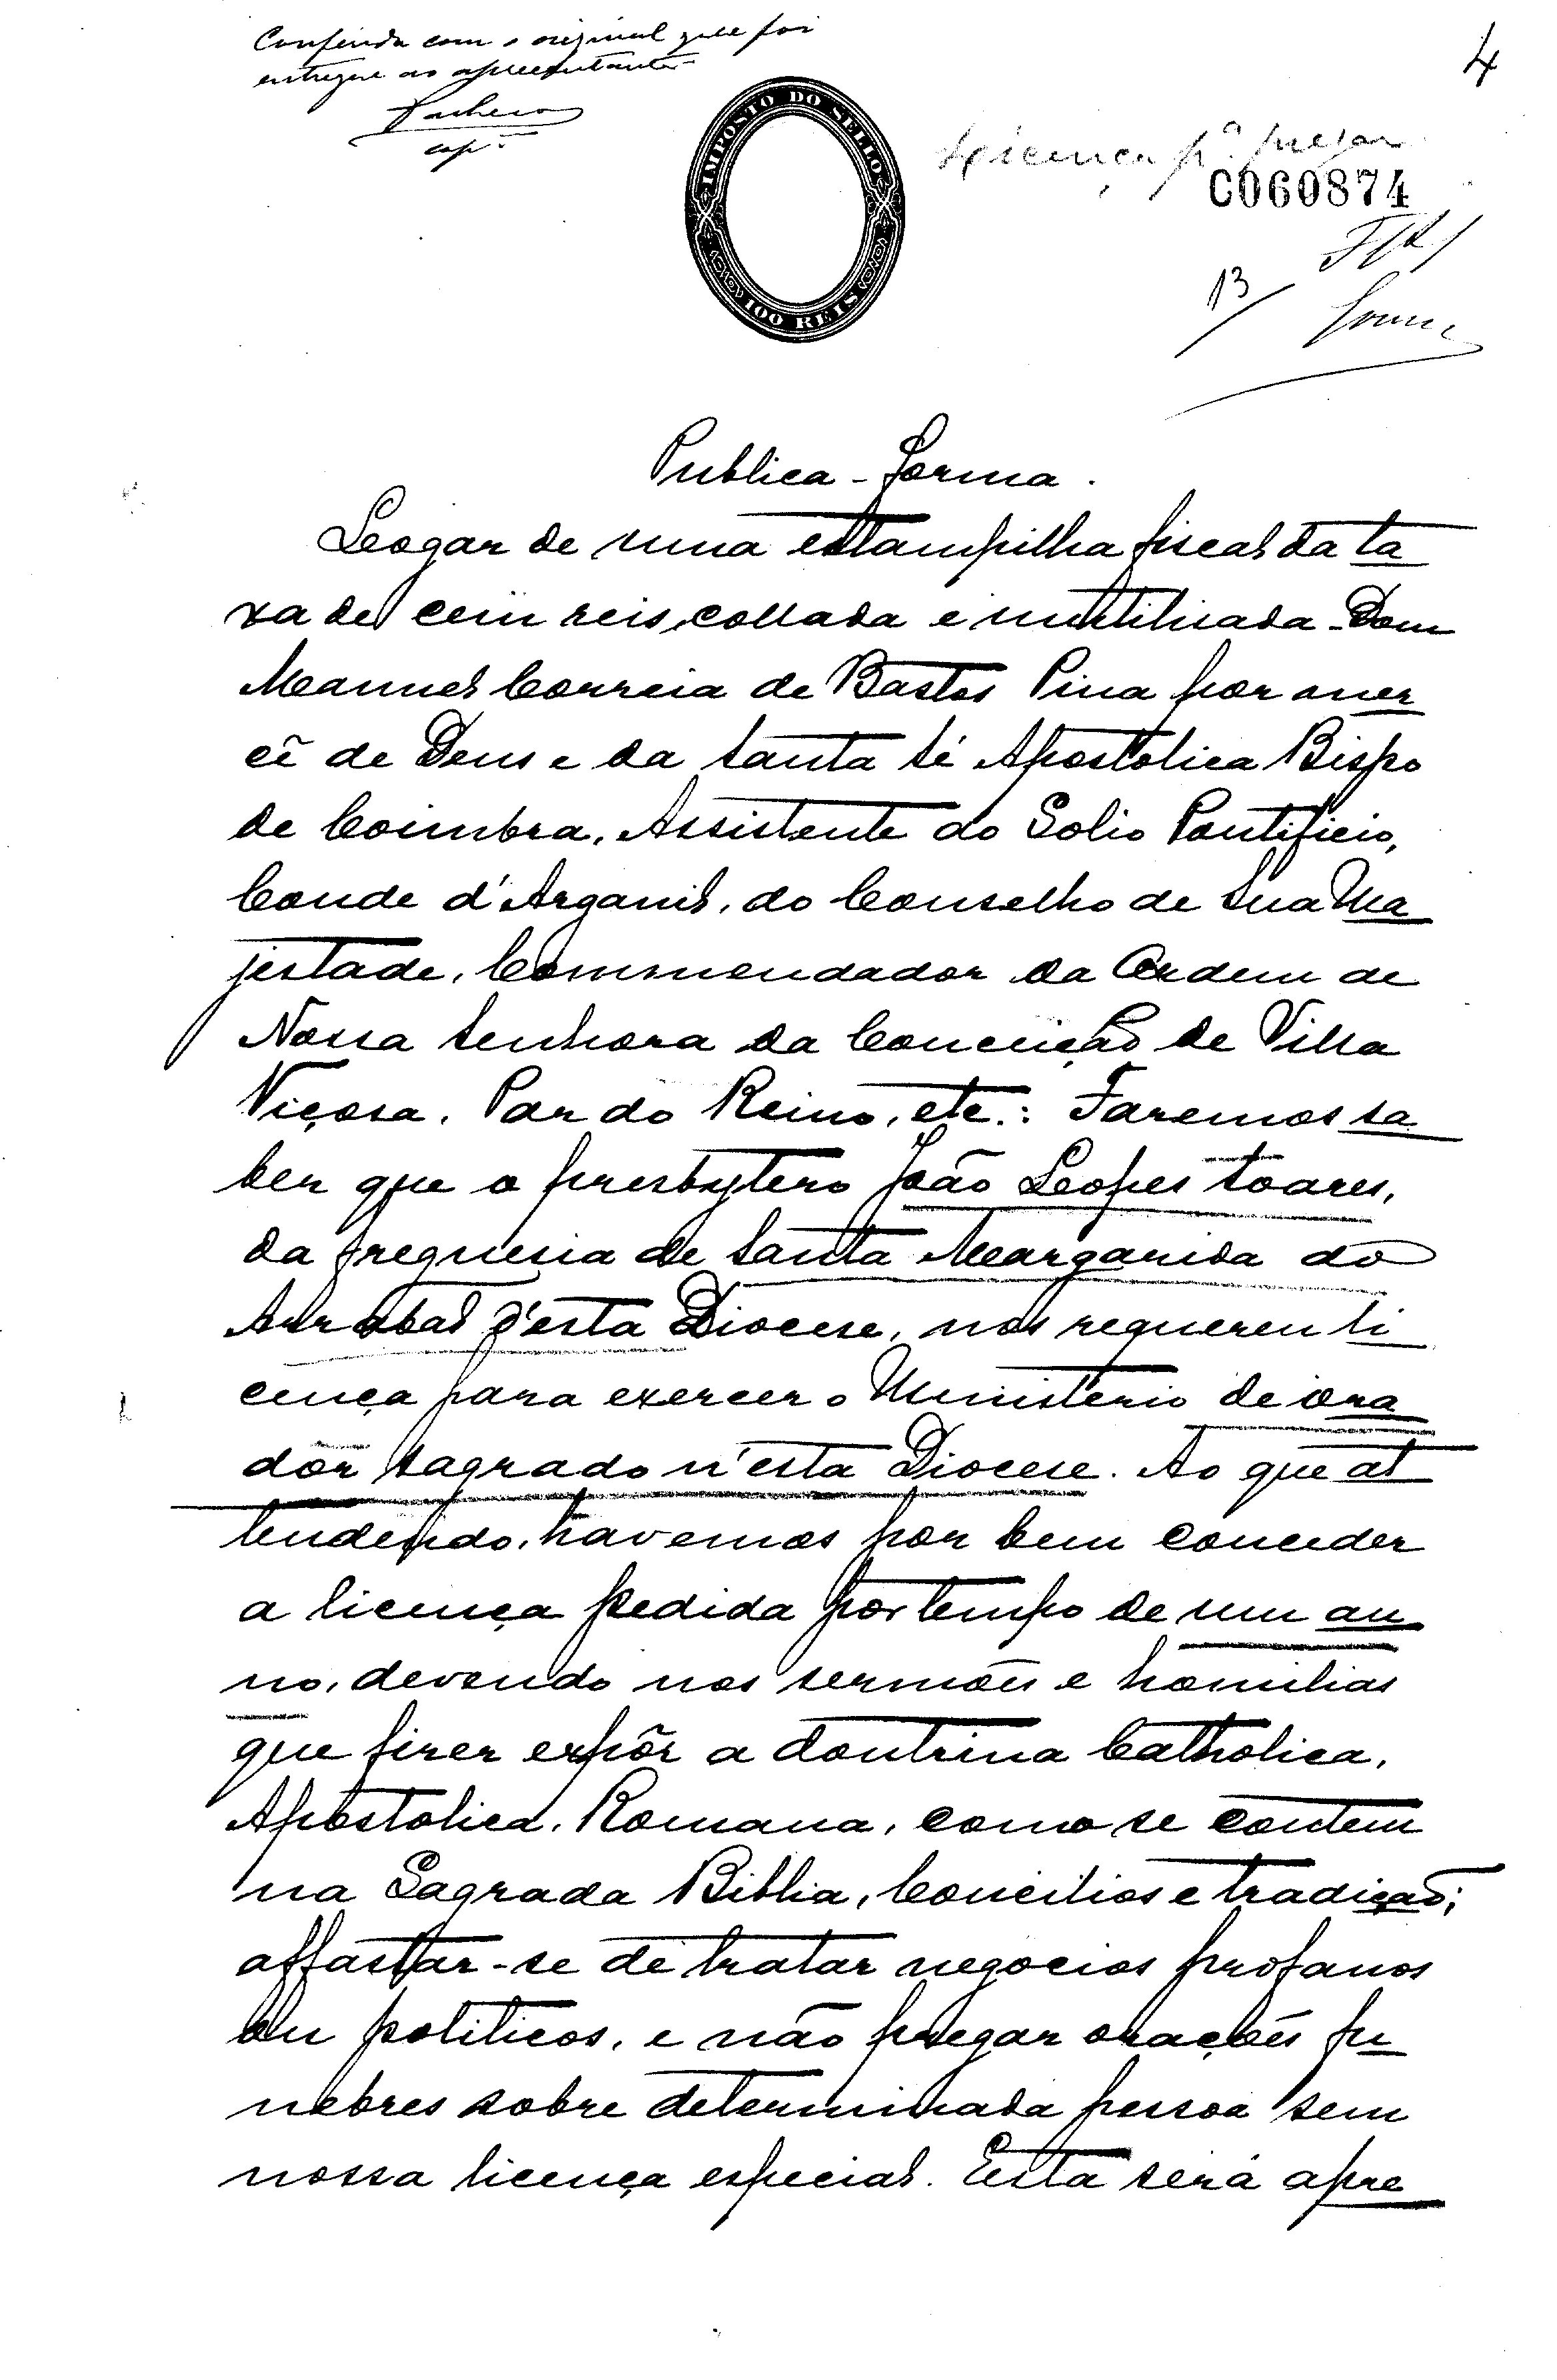 Conferida com o original que foi
entregue ao apresentante
Pacheco
cap.
4
IMPOSTO DO SELLO
100 REIS
Licença p.ª pregar
C060874
13
Publica-forma.
Logar de uma estampilha fiscal da ta
xa de cem reis, collada e inutilisada. Dom
Manuel Correia de Bastos Pina por mer
cê de Deus e da Santa Sé Apostolica Bispo
de Coimbra, Assistente ao Solio Pontificio,
Conde d'Arganil, do Conselho de Sua Ma
jestade, Commendador da Ordem de
Nossa Senhora da Conceição de Villa
Viçosa, Par do Reino, etc.: Faremos sa
ber que o presbytero João Lopes Soares,
da freguesia de Santa Margarida do
Arrabal d'esta Diocese, nos requereu li
cença para exercer o Ministerio de ora
dor sagrado n'esta Diocese. Ao que at
tendendo, havemos por bem conceder
a licença pedida por tempo de um an
no, devendo nos sermões e homilias
que fizer expôr a doutrina Catholica,
Apostolica, Romana, como se contem
na Sagrada Biblia, Concilios e tradição;
affastar-se de tratar negocios profanos
ou politicos, e não pregar orações fu
nebres sobre determinada pessoa sem
nossa licença especial. Esta será apre